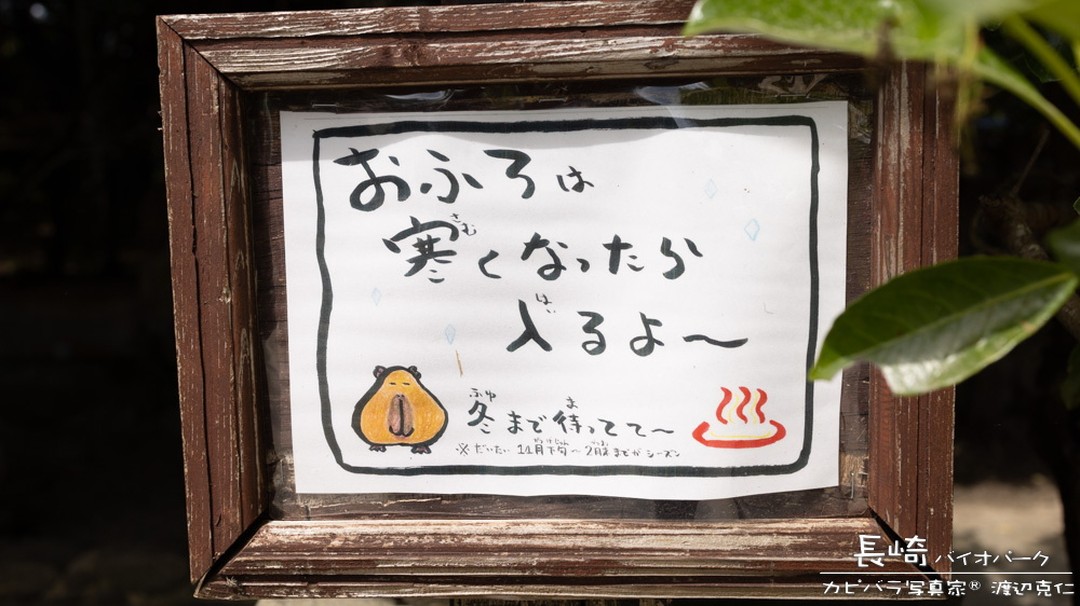 おふろは
寒くなったら
さむ
入るよ〜
はい
冬まで待ってて〜
ふゆ ま
※だいたい 11月下旬〜2月末までがシーズン
長崎バイオパーク
カピバラ写真家® 渡辺克仁